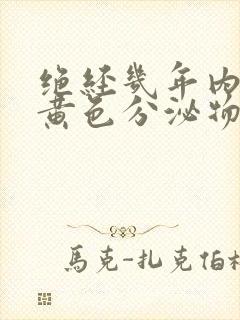 绝经几年内
黄色分泌物
馬克-扎克伯格